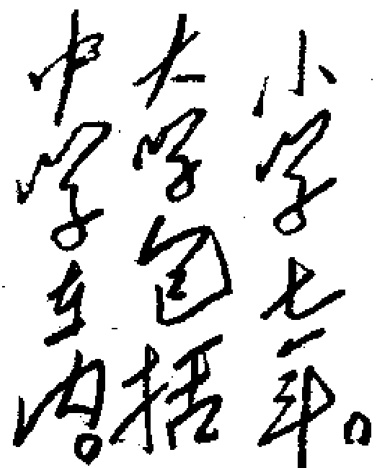 小学七年。
大学包括
中学在内。